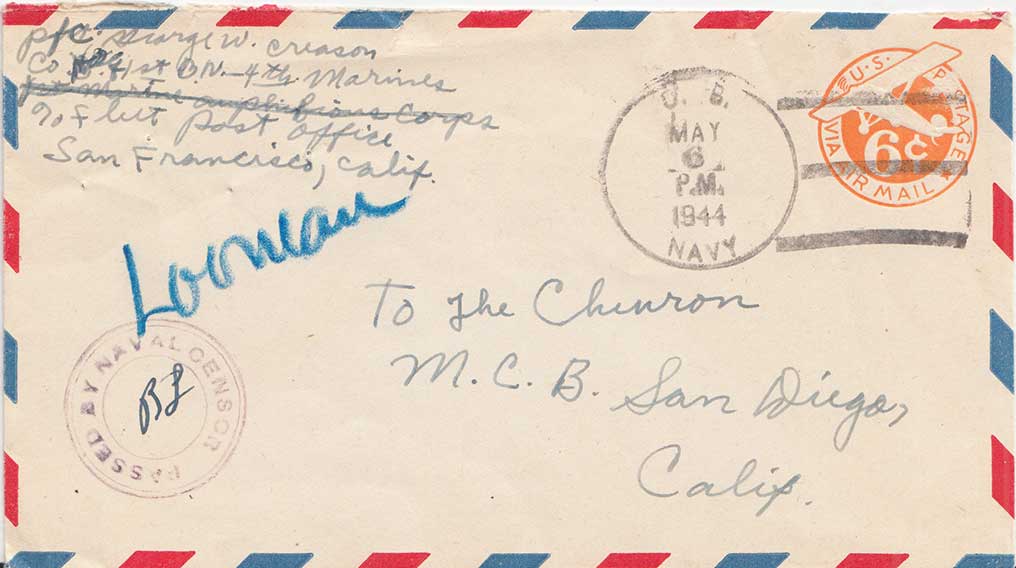 Pfc. George W. Creason
Co. 1st BN - 4th Marines
1st Marine Amphibious Corps
% Fleet Post Office
San Francisco, Calif.
U.S. POSTAGE
6¢
VIA AIR MAIL
U. S.
MAY
6
P.M.
1944
NAVY
Looman
To The Chevron
M. C. B. San Diego,
Calif.
PASSED BY NAVAL CENSOR